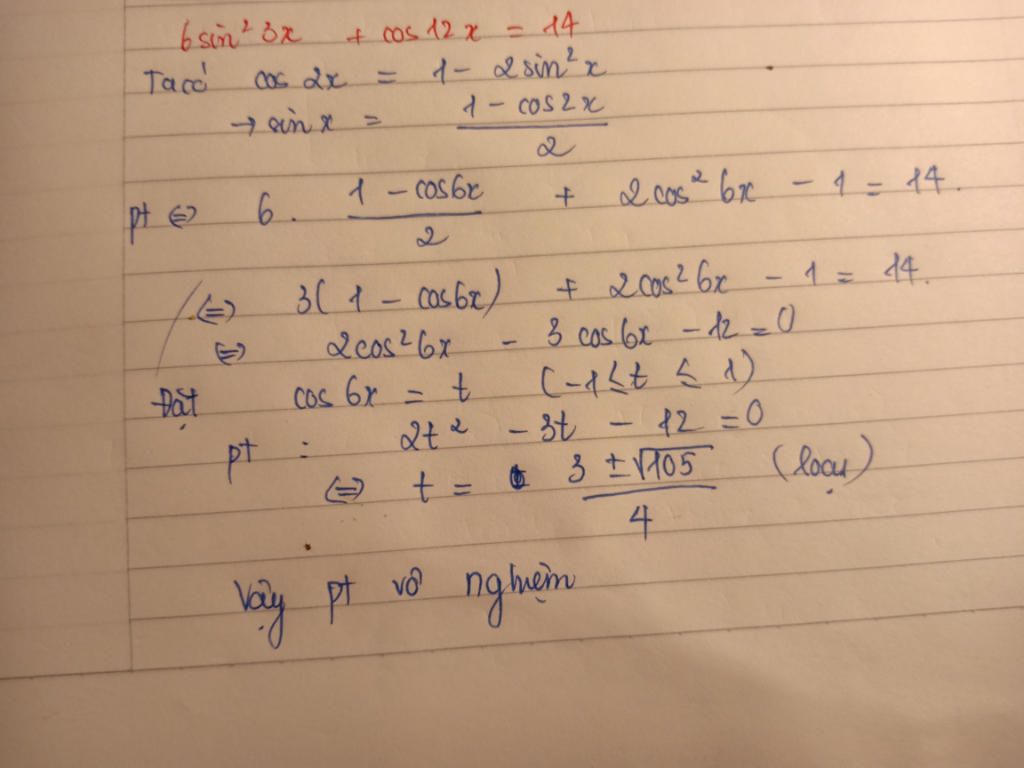 6sin² 3x + cos 12x = 14
Ta có cos 2x = 1 - 2sin² x
→ sin x = (1 - cos2x)/2
pt ⇔ 6 . (1 - cos6x)/2 + 2cos² 6x - 1 = 14.
⇔ 3(1 - cos6x) + 2cos² 6x - 1 = 14.
⇔ 2cos² 6x - 3 cos 6x - 12 = 0
Đặt cos 6x = t (-1 ≤ t ≤ 1)
pt : 2t² - 3t - 12 = 0
⇔ t = (3 ± √105)/4 (loại)
Vậy pt vô nghiệm